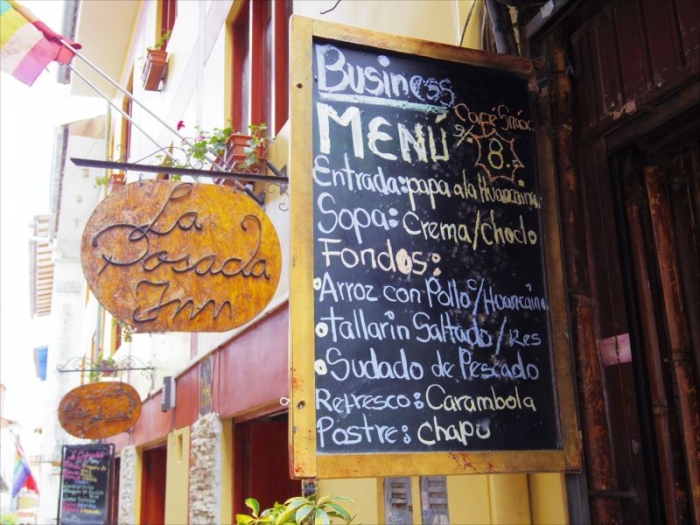 La
Posada
Inn
Business
Café Snack
MENÚ
S/ 8.
Entrada: papa a la Huancaína
Sopa: Crema/choclo
Fondos:
Arroz con Pollo c/Huancaina
tallarin Saltado/Res
Sudado de Pescado
Refresco: Carambola
Postre: Chapo